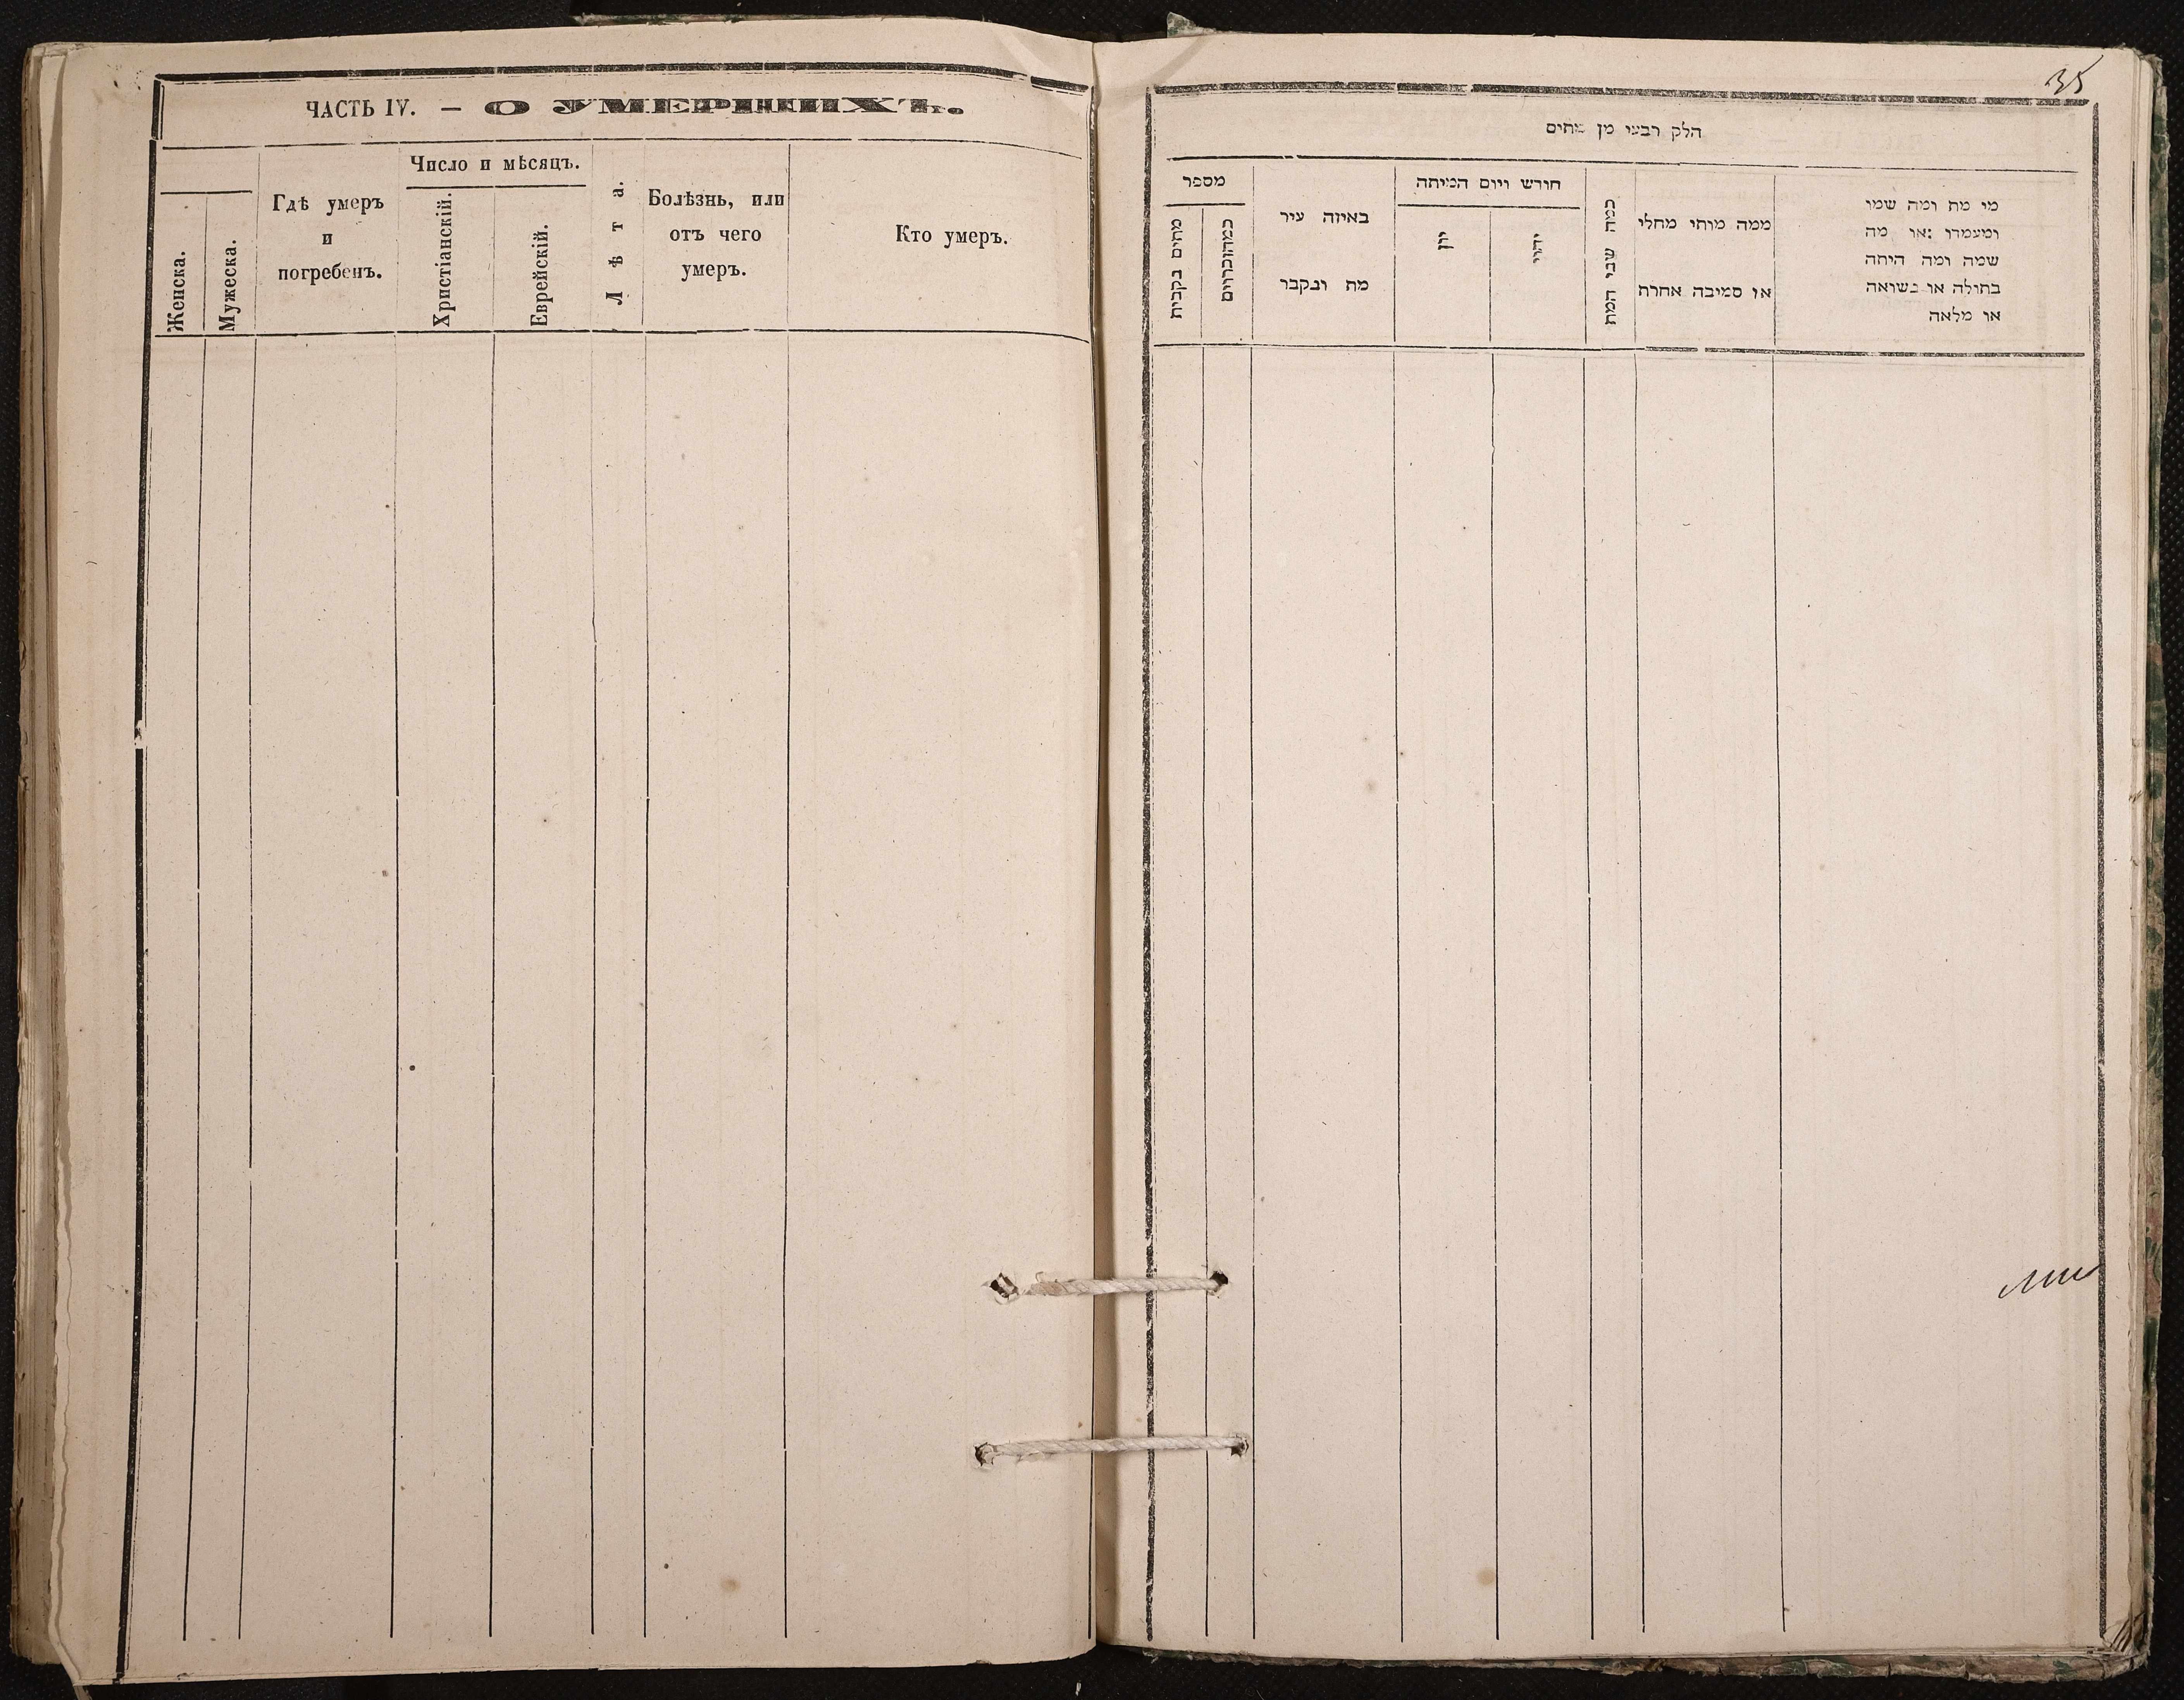 ЧАСТЬ IV. — О УМЕРШИХЪ.
Женска.
Мужеска.
Гдѣ умеръ
и
погребенъ.
Число и мѣсяцъ.
Христіанскій.
Еврейскій.
Лѣта.
Болѣзнь, или
отъ чего
умеръ.
Кто умеръ.
35
הלק רבעי מן מתים
מספר
באיזה עיר
מת ונקבר
חורש ויום המיתה
יון
יהודי
כמה שני המת
ממה מותי מחלי
או סמיבה אחרת
מי מת ומה שמו
ומעמדו :או מה
שמה ומה היתה
בתולה או נשואה
או מלאה